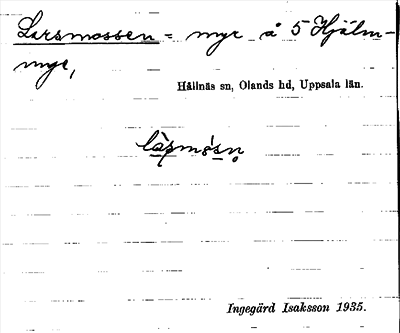 Larsmossen = myr å 5 Hjälm-
myr,
Hållnäs sn, Olands hd, Uppsala län.
Ingegärd Isaksson 1935.